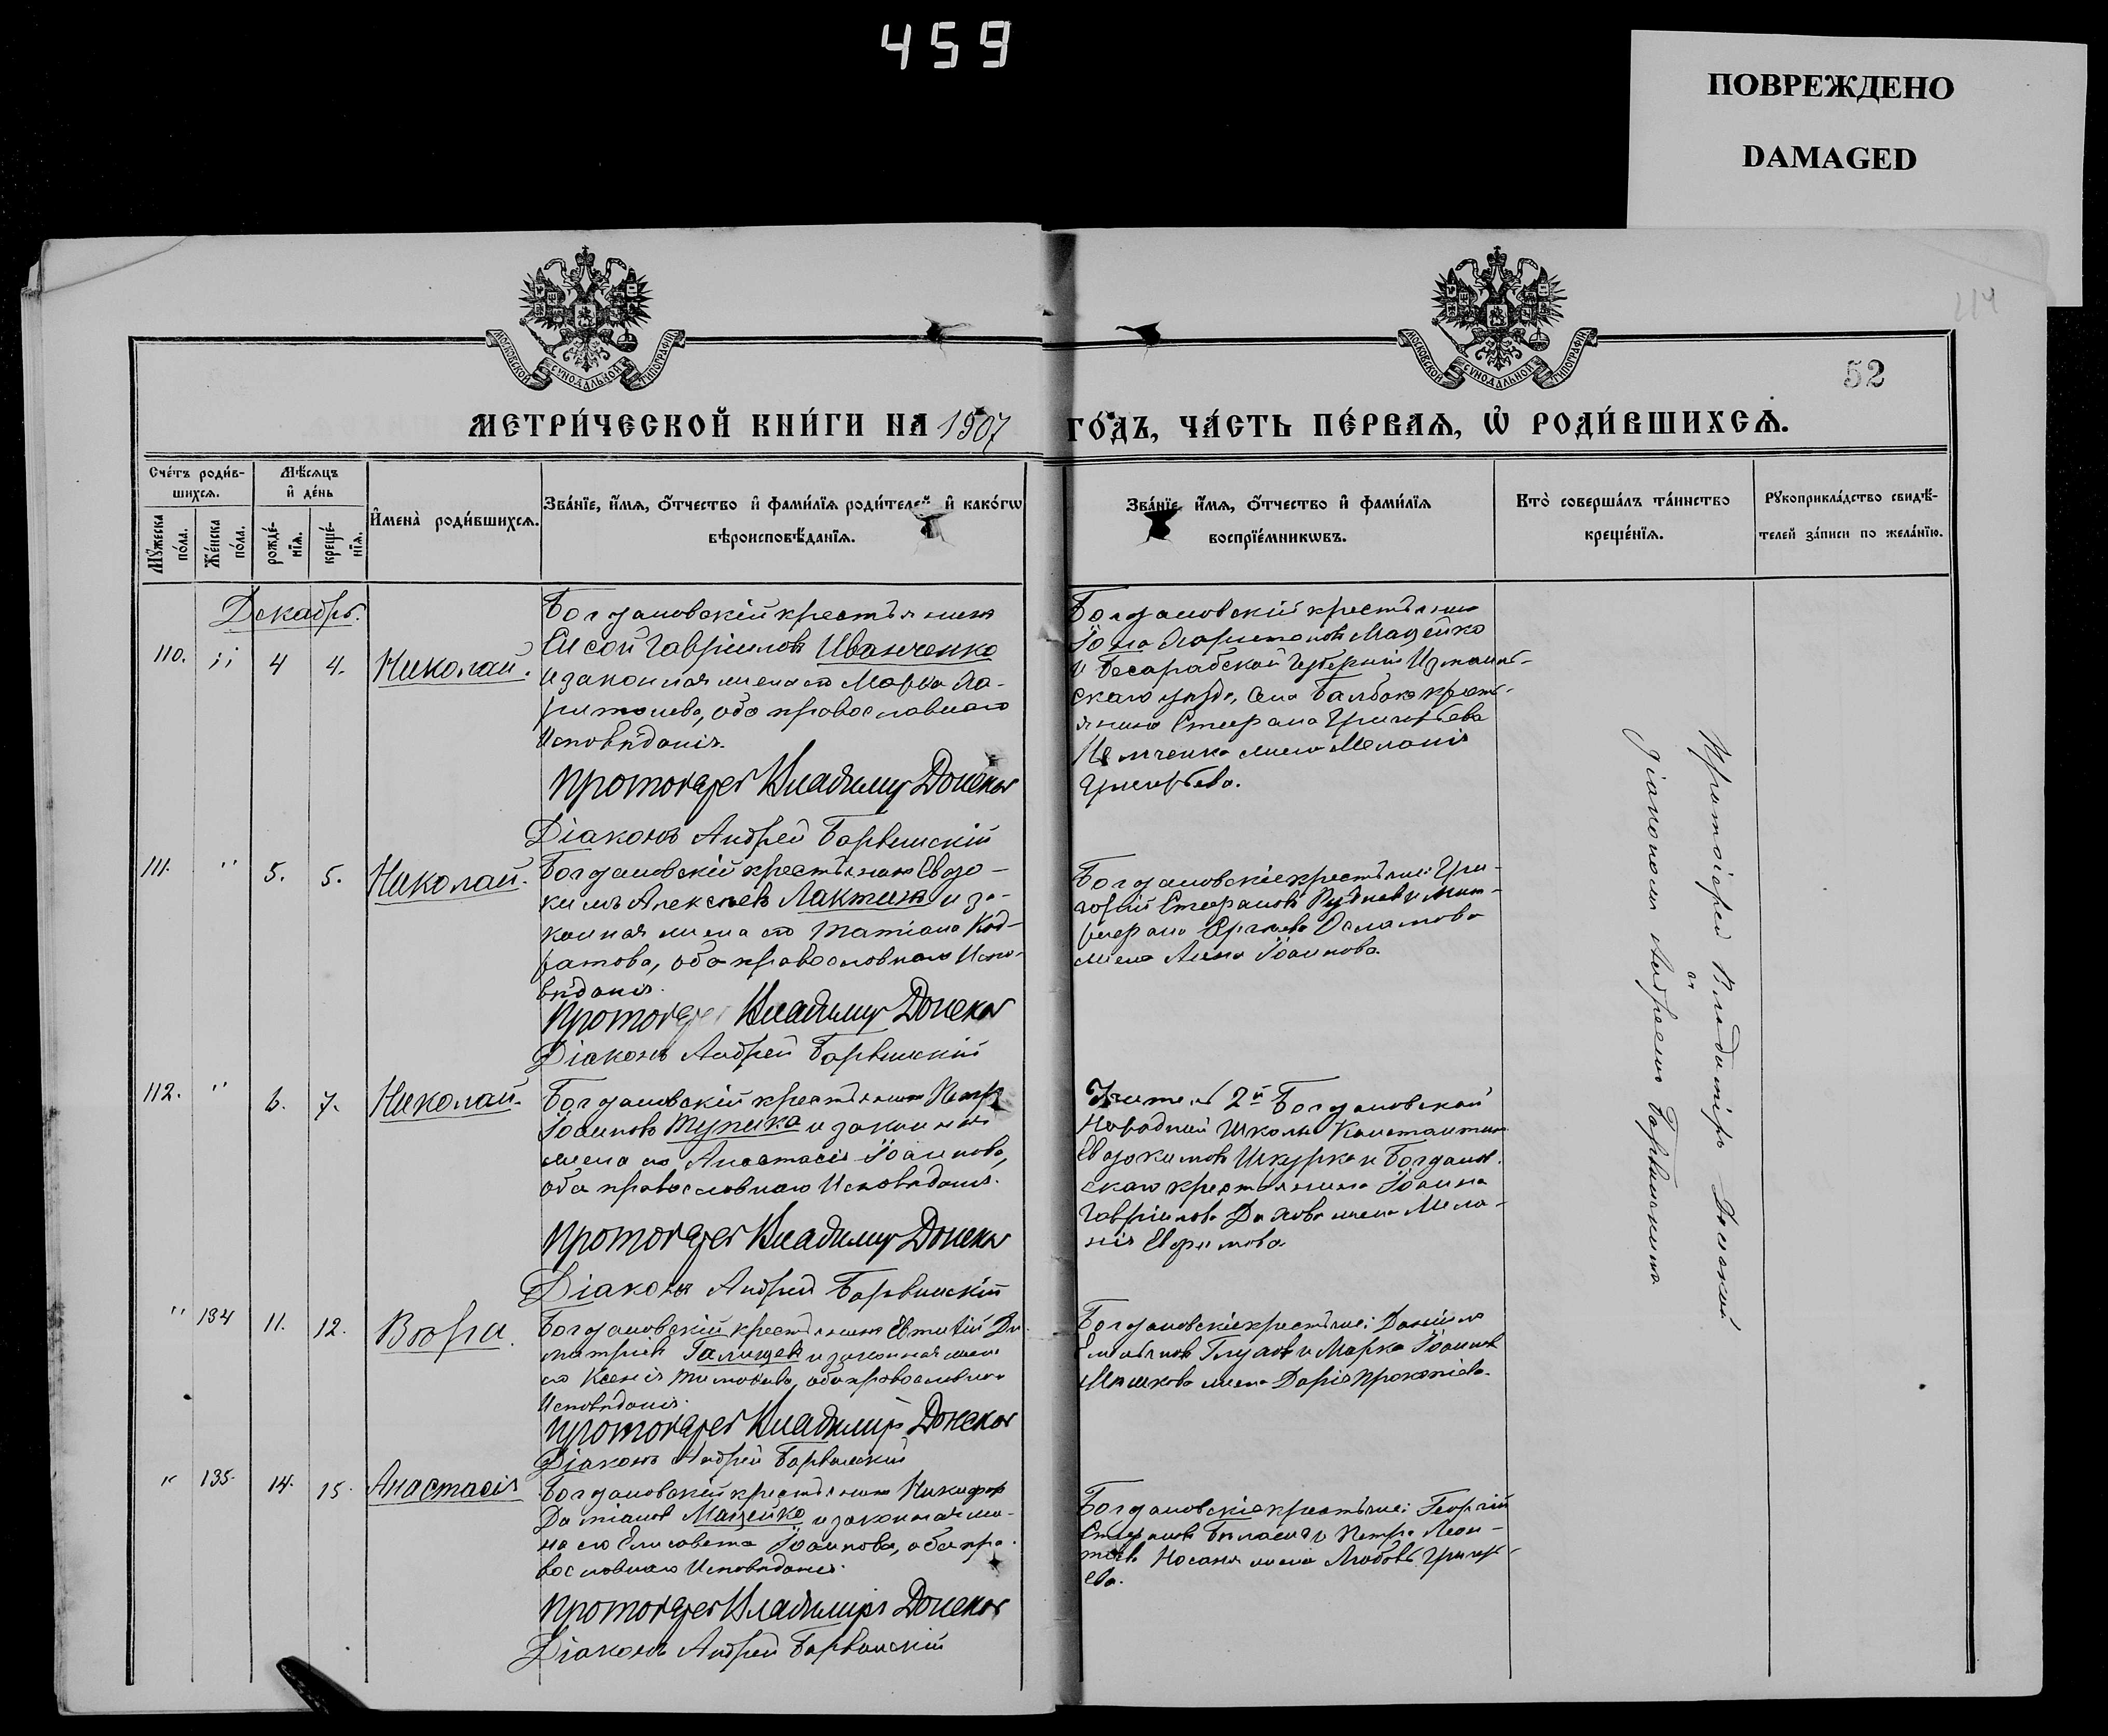 459
ПОВРЕЖДЕНО
DAMAGED
МОСКОВСКОЙ СѴНОДАЛЬНОЙ ТИПОГРАФІИ
МОСКОВСКОЙ СѴНОДАЛЬНОЙ ТИПОГРАФІИ
114
52
МЕТРИ́ЧЕСКОЙ КНИ́ГИ НА 1907
ГО́ДЪ, ЧА́СТЬ ПЕ́РВАѦ, Ѡ҆ РОДИ́ВШИХСѦ.
Сче́тъ роди́в-
шихсѧ.
Мѣ́сѧцъ
и҆ де́нь
Мꙋжеска
по́ла.
Же́нска
по́ла.
рожде́-
нїѧ.
креще́-
нїѧ.
И҆мена̀ роди́вшихсѧ.
Зва́нїе, и҆́мѧ, ѻ҆́тчество и҆ фами́лїѧ роди́телей и҆ како́гѡ
вѣроисповѣ́данїѧ.
Зва́нїе, и҆́мѧ, ѻ҆́тчество и҆ фами́лїѧ
воспрїе́мникѡвъ.
Кто̀ соверша́лъ та́инство
креще́нїѧ.
Рꙋкоприкла́дство свидѣ́-
телей за́писи по жела́нїю.
Декабрь.
110. " 4 4. Николай.
Богдановскій крестьянинъ
Сисой Гавріиловъ Иванченко
и законная жена его Марѳа Ха-
ритонова, оба православнаго
Исповѣданія.
Протоіерей Владимиръ Донской
Діаконъ Андрей Барвинскій
Богдановскій крестьянинъ
Іона Харитоновъ Мацейко
и Бесарабской Губерніи Измаиль-
скаго уѣзда, села Балбока кресть-
янина Стефана Григорьева
жена Меланія
Григорьева.
111. " 5. 5. Николай.
Богдановскій крестьянинъ Евдо-
кимъ Алексѣевъ Лактинъ и за-
конная жена его Татіана Код-
ратова, оба православнаго Испо-
вѣданія.
Протоіерей Владимиръ Донской
Діаконъ Андрей Барвинскій
Богдановскіе крестьяне: Гри-
горій Стефановъ Рудневъ и Мит-
рофана
жена Анна Іоаннова.
112. " 6. 7. Николай.
Богдановскій крестьянинъ Петръ
Іоанновъ Тупика и законная
жена его Анастасія Іоаннова,
оба православнаго Исповѣданія.
Протоіерей Владимиръ Донской
Діаконъ Андрей Барвинскій
Учитель 2й Богдановской
Народной школы Константинъ
Евдокимовъ Шкурка и Богданов-
скаго крестьянина Іоанна
Гавріилова жена Мела-
нія Ефимова.
" 134 11. 12. Варвара.
Богдановскій крестьянинъ Евтихій Ди-
митріевъ Галищевъ и законная жена
его Ксенія Тимоѳеева, оба православнаго
Исповѣданія.
Протоіерей Владимиръ Донской
Діаконъ Андрей Барвинскій
Богдановскіе крестьяне: Даніилъ
Емельяновъ Глуховъ и Марка Іоаннова
Машкова жена Дарія Прокопіева.
" 135. 14. 15. Анастасія
Богдановскій крестьянинъ Никифоръ
Даміановъ Мацейко и законная же-
на его Елисавета Іоаннова, оба пра-
вославнаго Исповѣданія.
Протоіерей Владимиръ Донской
Діаконъ Андрей Барвинскій
Богдановскіе крестьяне: Георгій
Стефановъ и Петра Леон-
тьева Носаня жена Любовь Григорь-
ева.
Протоіерей Владимиръ Донской
съ
Діакономъ Андреемъ Барвинскимъ